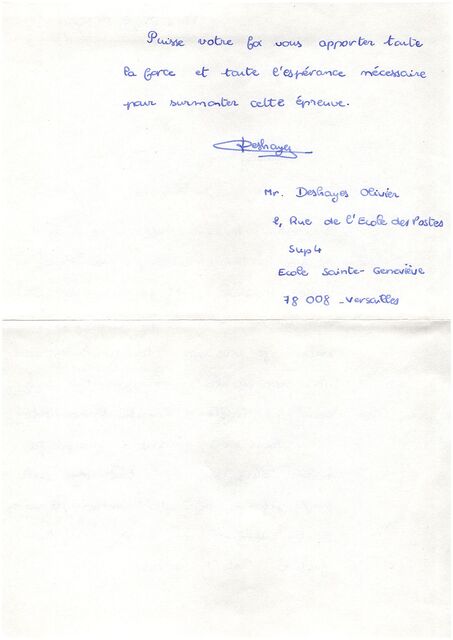 Puisse votre foi vous apporter toute
la force et toute l'espérance nécessaire
pour surmonter cette épreuve.
Deshayes
Mr. Deshayes Olivier
2, Rue de l'Ecole des Postes
Sup 4
Ecole Sainte-Geneviève
78 008 - Versailles